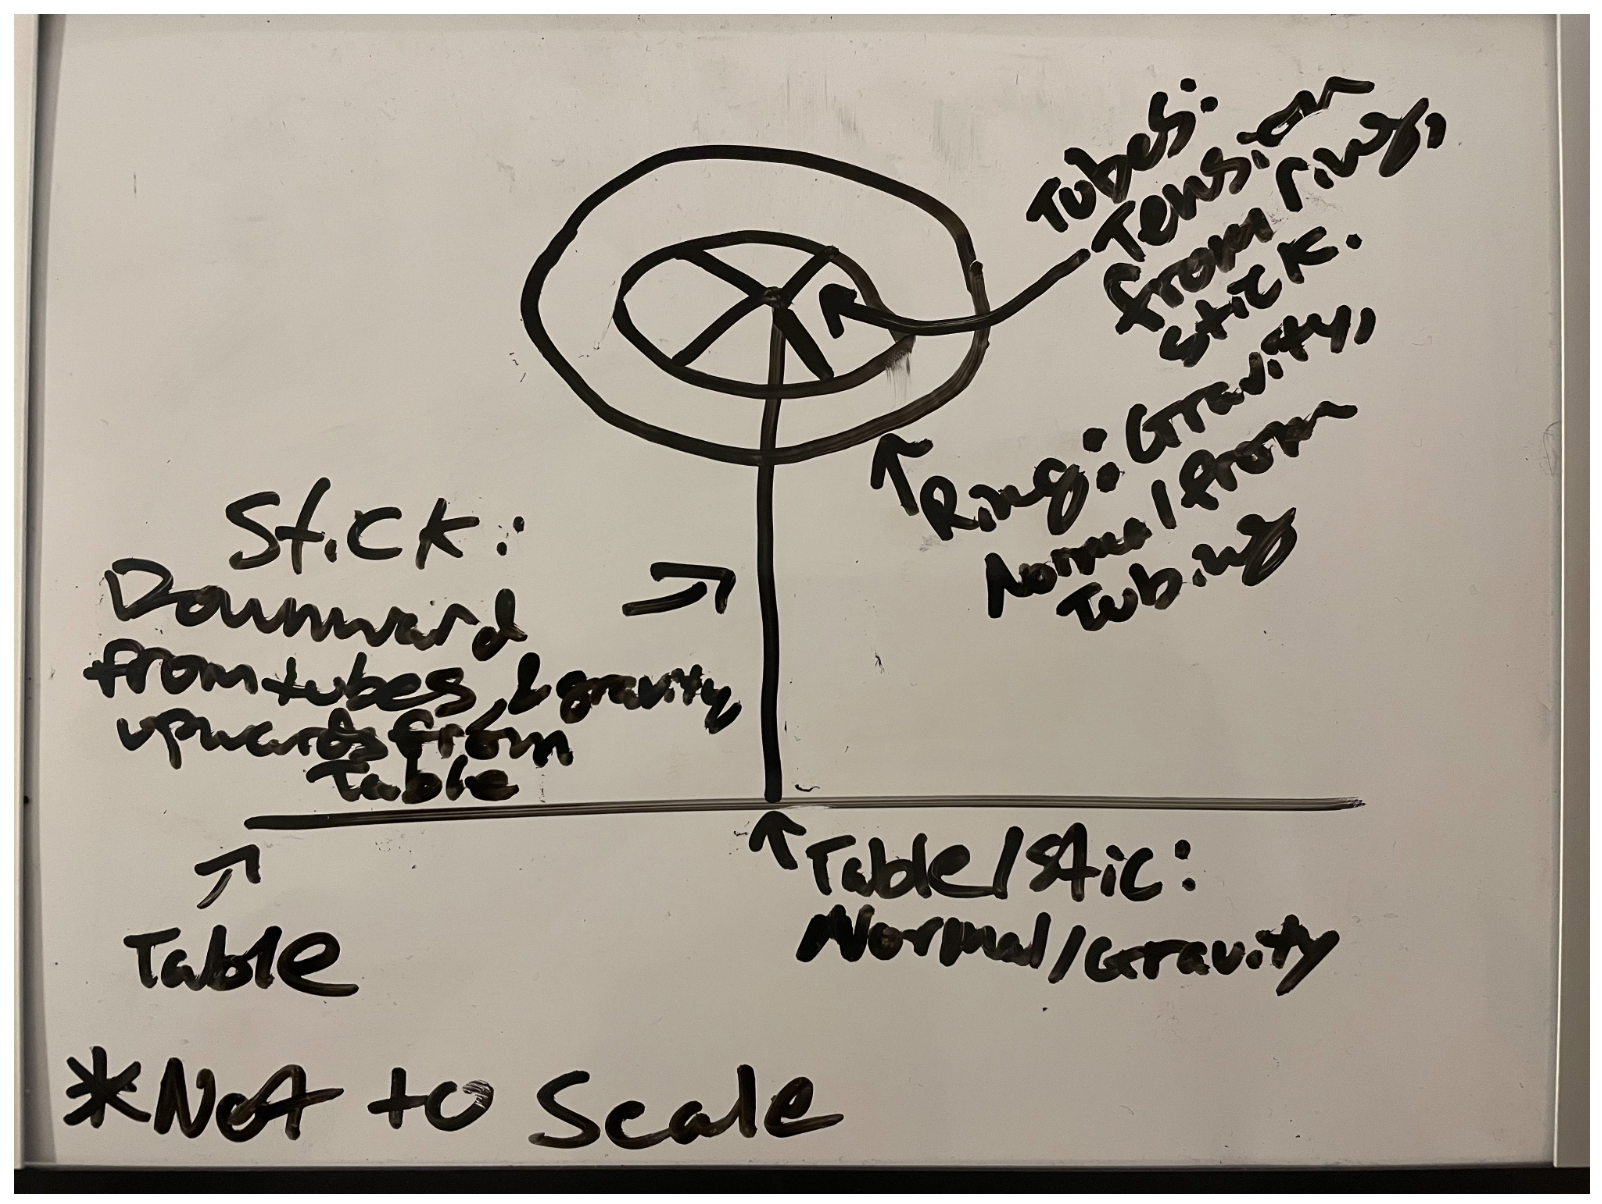 Tubes:
Tension
from ring,
stick.
Ring: Gravity,
Normal from
Tubing
Stick:
Downward
from tubes & gravity
upwards from
Table
Table/stic:
Normal/Gravity
Table
*Not to Scale